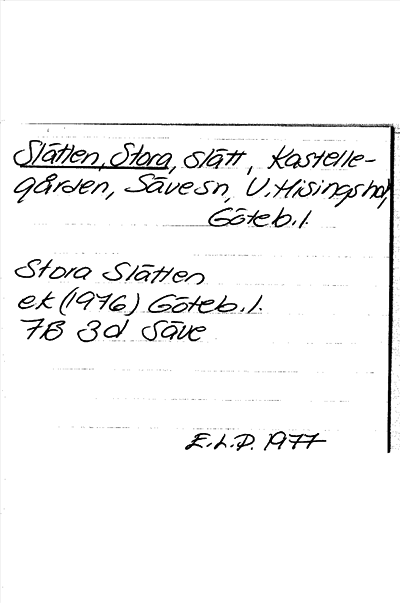 Slätten, Stora, slätt, Kastelle-
gården, Säve sn, V. Hisings hd,
Göteb. l.
Stora Slätten
ek (1976) Göteb. l.
7B 3d Säve
E.L.P. 1977